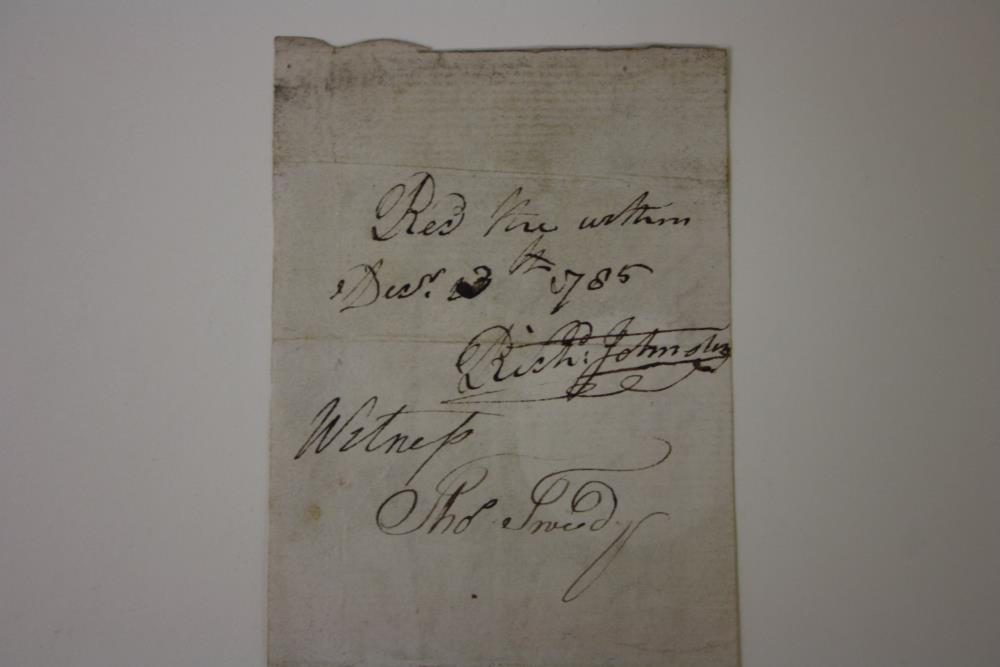 Recd the within
Decr. 13th 1785
Richd: Johnston
Witneſs
Thos Tweedy